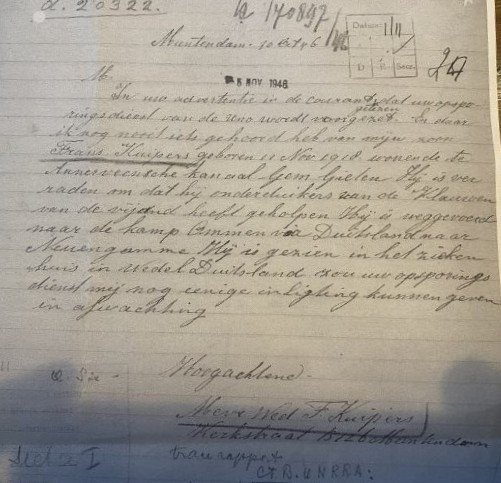 A. 20322.
Datum: 1/11
D
Secr.
Muntendam 30 Oct 46
5 NOV 1946
M.
In uw advertentie in de courant dat uw opspo-
gelezen
ringsdienst van de Uno wordt voorgezet En daar
ik nog nooit iets gehoord heb van mijn zoon
Frans Kuipers geboren 11 Nov 1918 wonende te
Annerveensche kanaal Gem Gieten Hij is ver
raden om dat hij onderduikers van de Klauwen
van de vijand heeft geholpen Hij is weggevoerd
naar de kamp Ommen via Duitsland naar
Neuengamme Hij is gezien in het zieken
huis in Wedel Duitsland zou uw opsporings
dienst mij nog eenige inligting kunnen geven
in afwachting
Hoogachtend
Mevr Wed F Kuipers
Kerkstraat Muntendam
CTB. UNRRA.